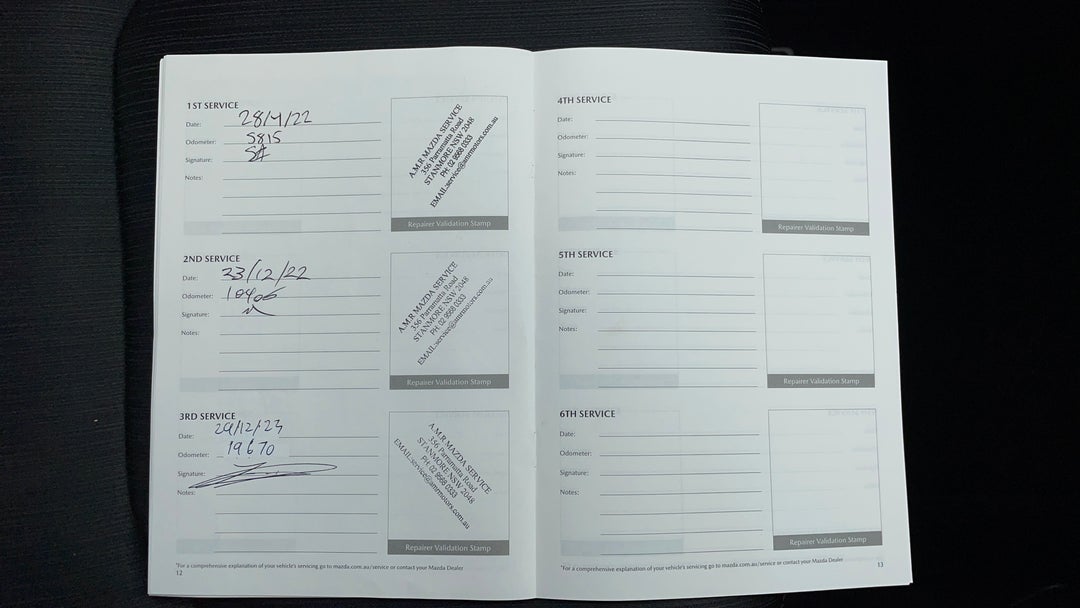 1ST SERVICE
Date: 28/4/22
Odometer: 5815
Signature:
Notes:
A.M.R MAZDA SERVICE
356 Parramatta Road
STANMORE NSW 2048
PH: 02 9568 0333
EMAIL:service@amrmotors.com.au
Repairer Validation Stamp
2ND SERVICE
Date: 23/12/22
Odometer: 10406
Signature:
Notes:
A.M.R MAZDA SERVICE
356 Parramatta Road
STANMORE NSW 2048
PH: 02 9568 0333
EMAIL:service@amrmotors.com.au
Repairer Validation Stamp
3RD SERVICE
Date: 29/12/23
Odometer: 19670
Signature:
Notes:
A.M.R MAZDA SERVICE
356 Parramatta Road
STANMORE NSW 2048
PH: 02 9568 0333
EMAIL:service@amrmotors.com.au
Repairer Validation Stamp
*For a comprehensive explanation of your vehicle's servicing go to mazda.com.au/service or contact your Mazda Dealer
12
4TH SERVICE
Date:
Odometer:
Signature:
Notes:
Repairer Validation Stamp
5TH SERVICE
Date:
Odometer:
Signature:
Notes:
Repairer Validation Stamp
6TH SERVICE
Date:
Odometer:
Signature:
Notes:
Repairer Validation Stamp
*For a comprehensive explanation of your vehicle's servicing go to mazda.com.au/service or contact your Mazda Dealer
13